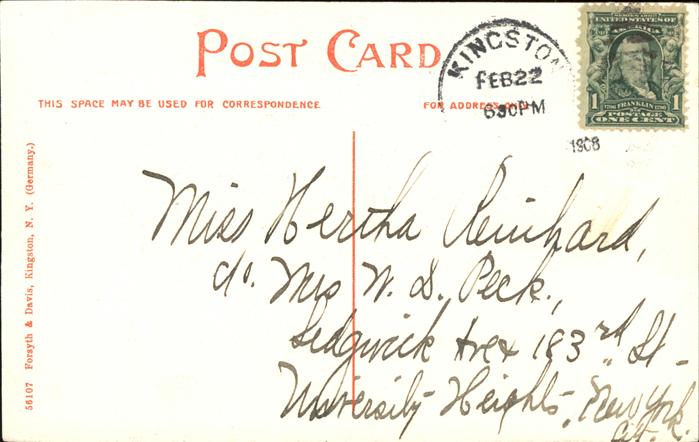 POST CARD
THIS SPACE MAY BE USED FOR CORRESPONDENCE
FOR ADDRESS ONLY
KINGSTON
FEB 22
630PM
1908
UNITED STATES OF
AMERICA
1 FRANKLIN 1
POSTAGE
ONE CENT
Miss Hertha Reinhard,
c/o. Mrs W. S. Peck.,
Sedgwick Ave & 183rd St-
University Heights, New York
56107 Forsyth & Davis, Kingston, N. Y. (Germany.)